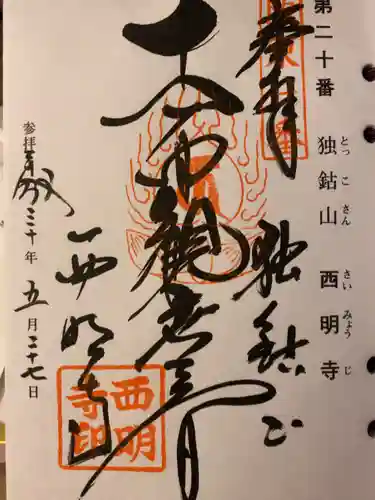 第二十番 独鈷山 西明寺
とっこさん さいみょうじ
奉拝
独鈷山
十一面観世音
西明寺
西明
寺印
参拝 平成三十年五月二十七日